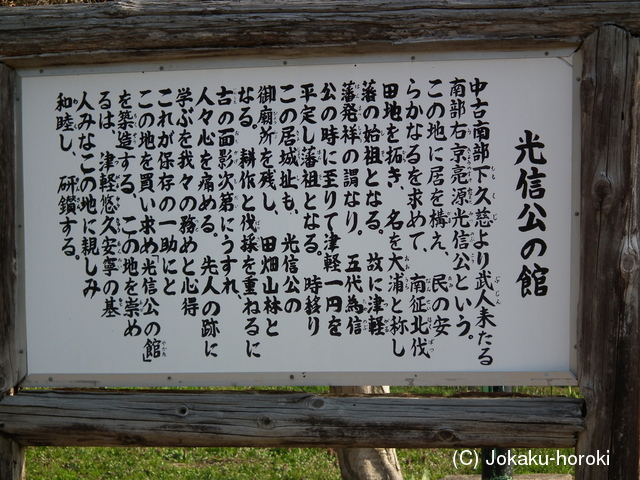 光信公の館
中古南部下久慈より武人来たる
南部右京亮源光信公という。
この地に居を構え、民の安
らかなるを求めて、南征北伐
田地を拓き、名を大浦と称し
藩の始祖となる。故に津軽
藩発祥の謂なり。五代為信
公の時に至りて津軽一円を
平定し藩祖となる。時移り
この居城址も、光信公の
御廟所を残し、田畑山林と
なる。耕作と伐採を重ねるに
古の面影次第にうすれ、
人々心を痛める。先人の跡に
学ぶを我々の務めと心得
これが保存の一助にと
この地を買い求め「光信公の館」
を築造する、この地を崇め
るは、津軽悠久安寧の基
人みなこの地に親しみ
和睦し、研鑚する。
(C) Jokaku-horoki